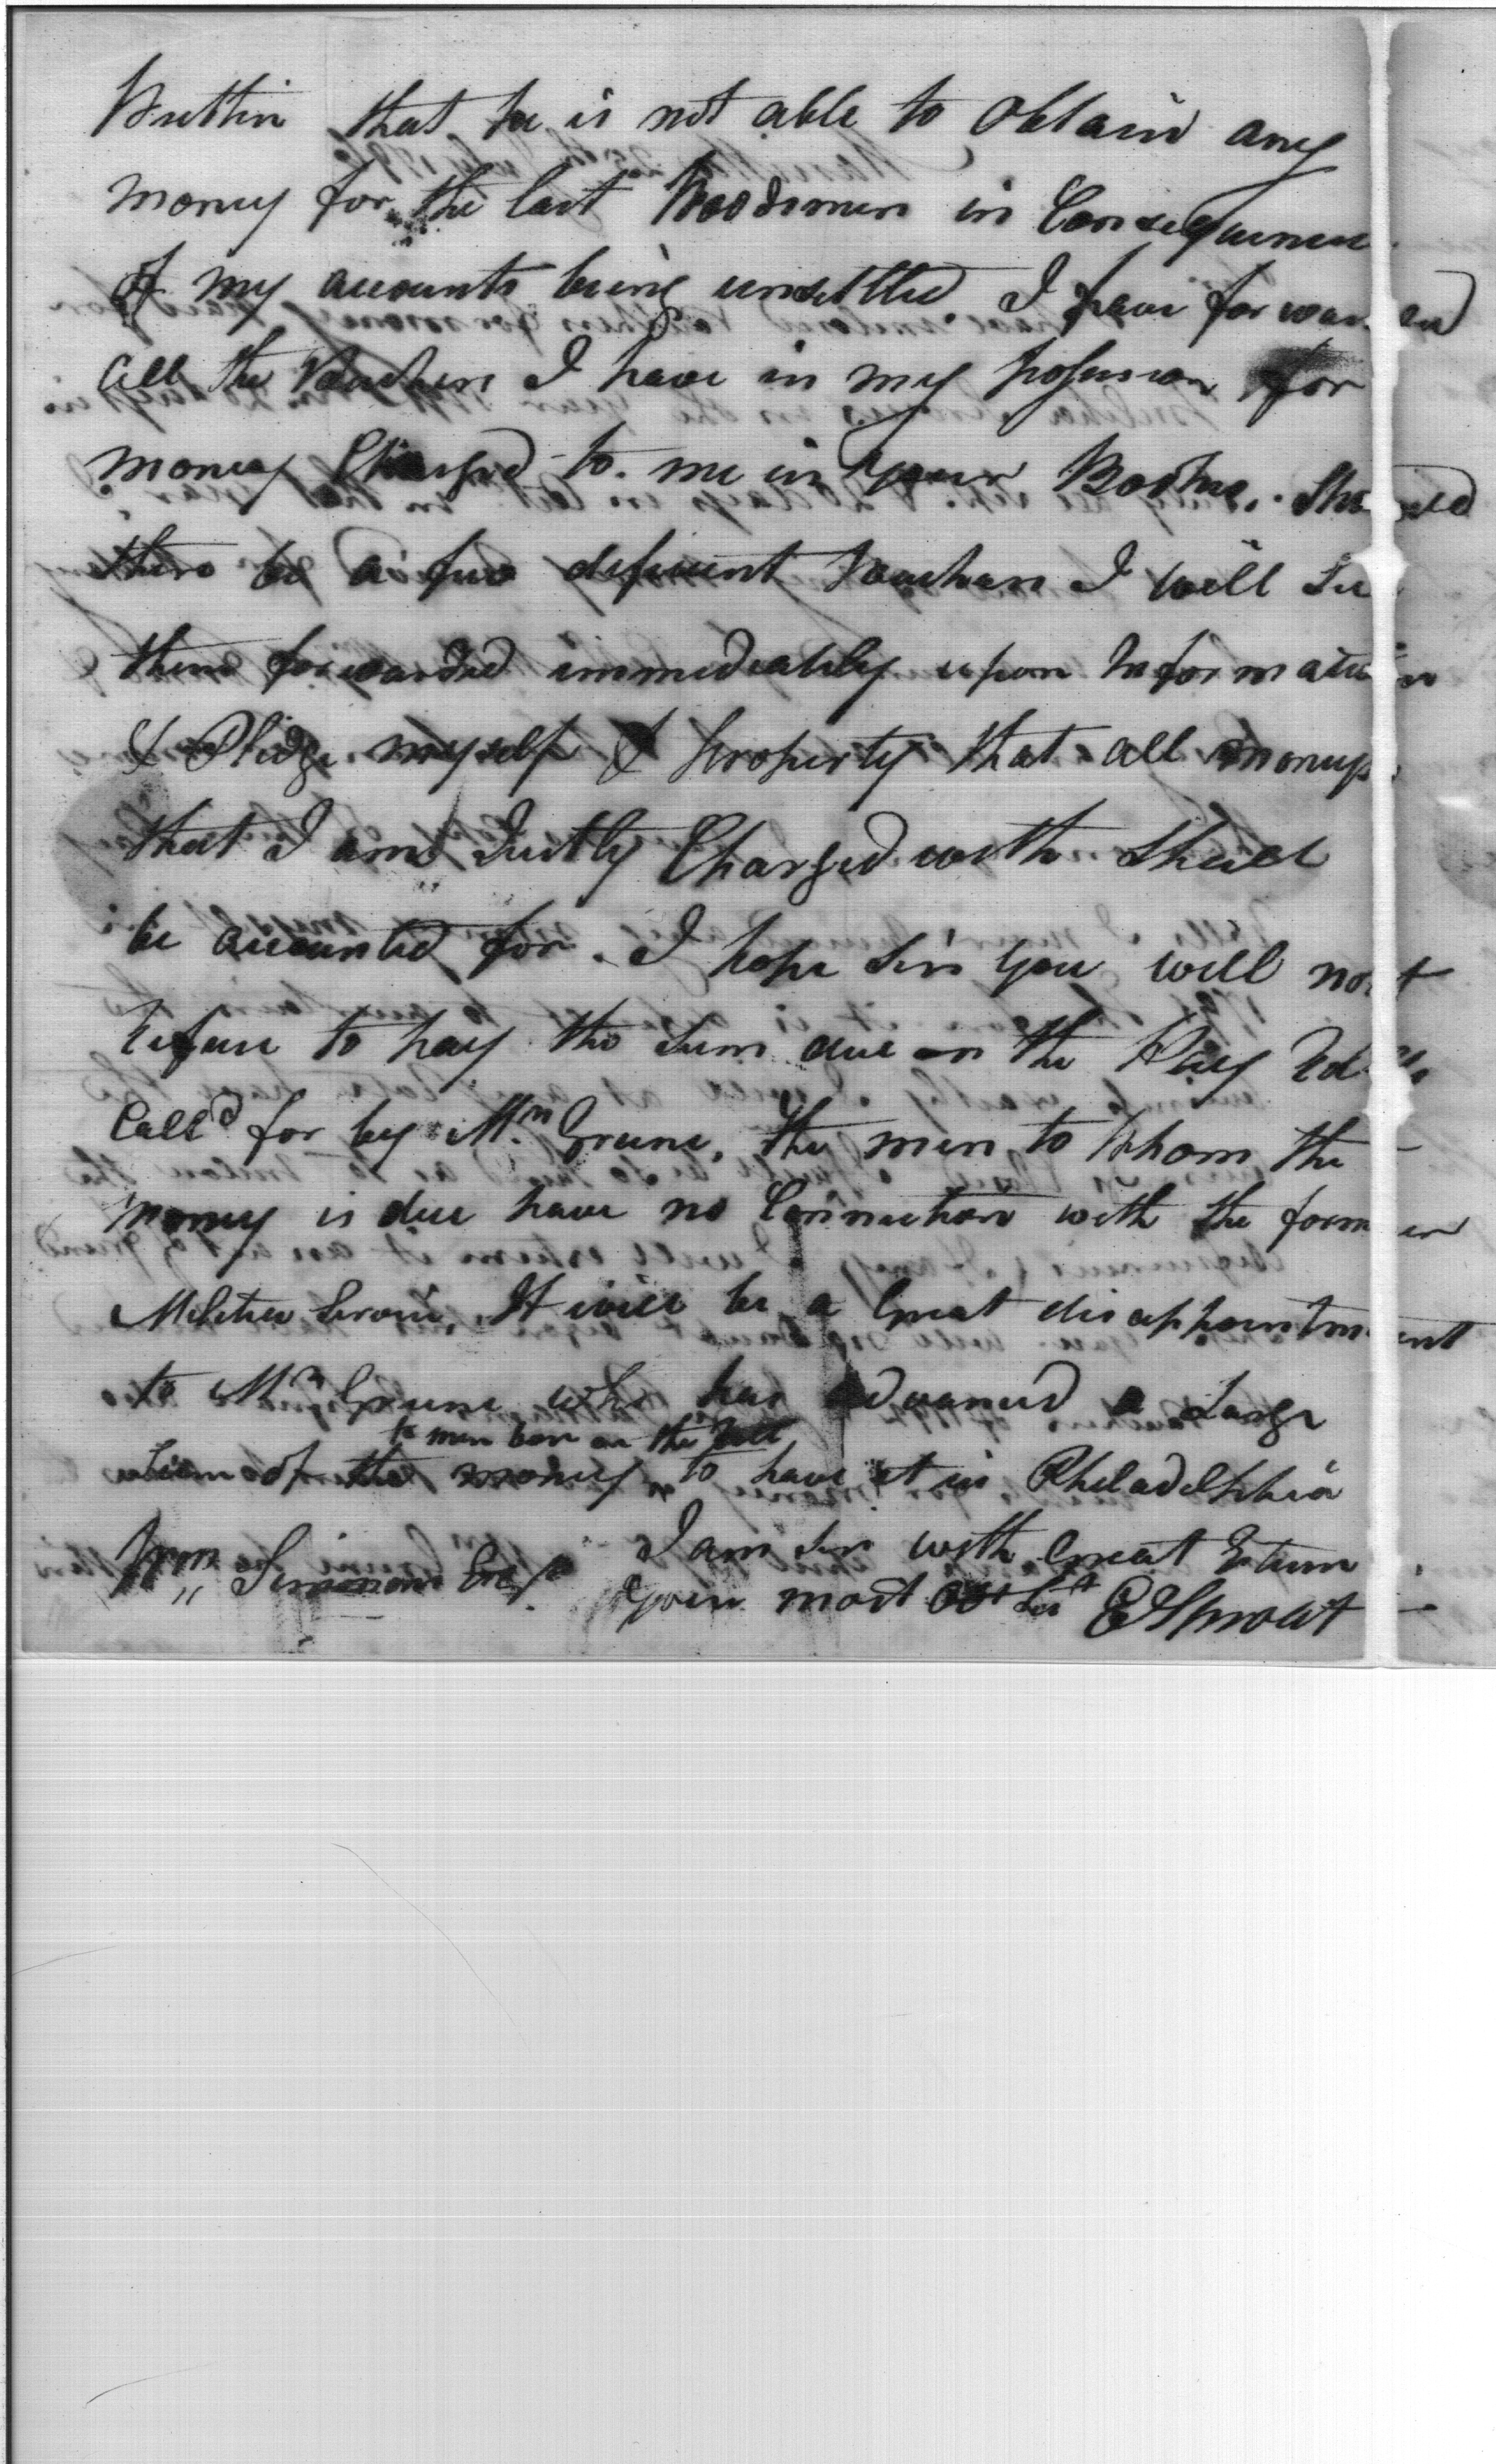 Writtin that he is not able to obtain any
money for the last Woodsmen in Consequence
of my accounts being unsettled I have forwarded
all the Vouchers I have in my possession for
money Charged to me in your Books. Should
there be a few deficient Vouchers I will see
them forwarded immediately upon Information
& Pledge myself & property that all moneys
that I am Justly Charged with shall
be accounted for. I hope Sir you will not
refuse to pay the sum due on the Pay Rolls
Call'd for by Mr. Greene, the men to Whom the
money is due have no Connection with the former
Militia Service, It will be a Great disappointment
to Mr Greene who has advanced a Large
to men born on the Roll
Sum of the money to have it in Philadelphia
I am Sir with Great Esteem
Wm Simmons Esqr. your most Obt Sert E Sproat